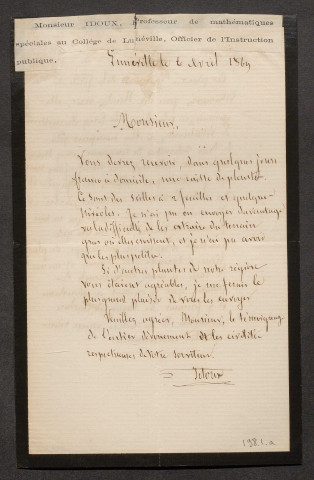 Monsieur IDOUX, Professeur de mathématiques
spéciales au Collège de Lunéville, Officier de l'Instruction
publique.
Lunéville le 6 Avril 1869
Monsieur,
Vous devez recevoir, dans quelques jours
franco à domicile, une caisse de plantes
Ce sont des Scilles à 2 feuilles et quelques
Nivéoles. Je n'ai pu en envoyer davantage
vu la difficulté de les extraire du terrain
gras où elles croissent, et je n'ai pu avoir
que les plus petites.
Si d'autres plantes de notre région
vous étaient agréables, je me ferais le
plus grand plaisir de vous les envoyer
Veuillez agréer, Monsieur, le témoignage
de l'entier dévouement et les civilités
respectueuses de Votre serviteur.
Idoux
198.1.a